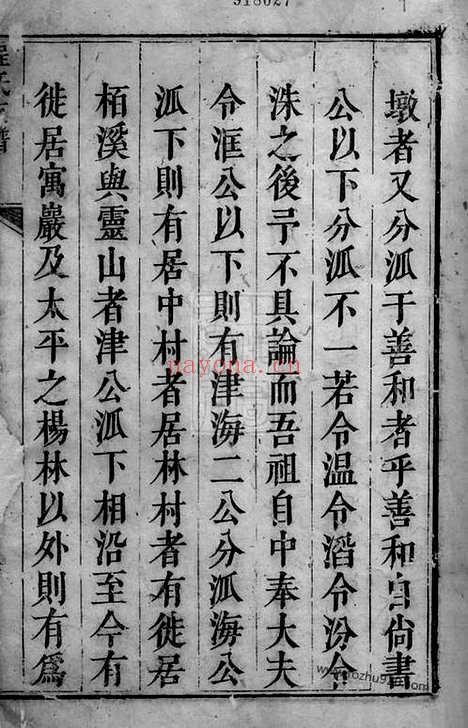 918027
墩者又分泒于善和者乎善和自尚書
公以下分泒不一若令温令滔令汾令
洙之後予不具論而吾祖自中奉大夫
令滙公以下則有津海二公分泒海公
泒下則有居中村者居林村者有徙居
栢溪與靈山者津公泒下相沿至今有
徙居寓巖及太平之楊林以外則有爲
nayona.cn